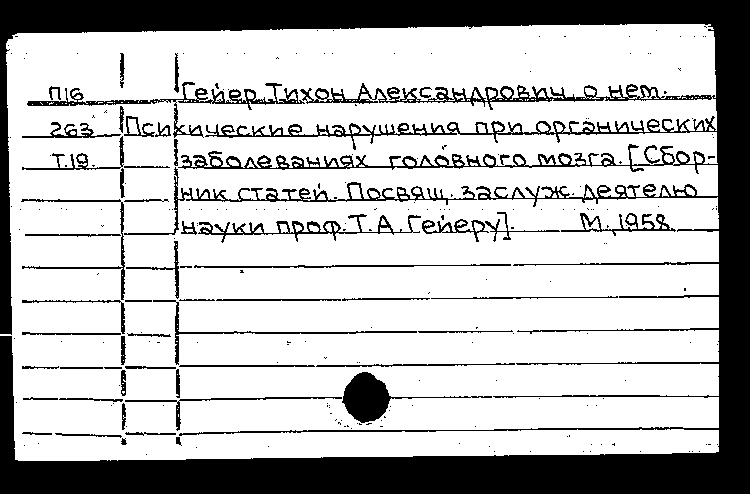 П16 Гейер Тихон Александрович, о нем.
263 Психические нарушения при органических
Т.19. заболеваниях головного мозга. [Сбор-
ник статей. Посвящ. заслуж. деятелю
науки проф. Т.А. Гейеру]. М., 1958